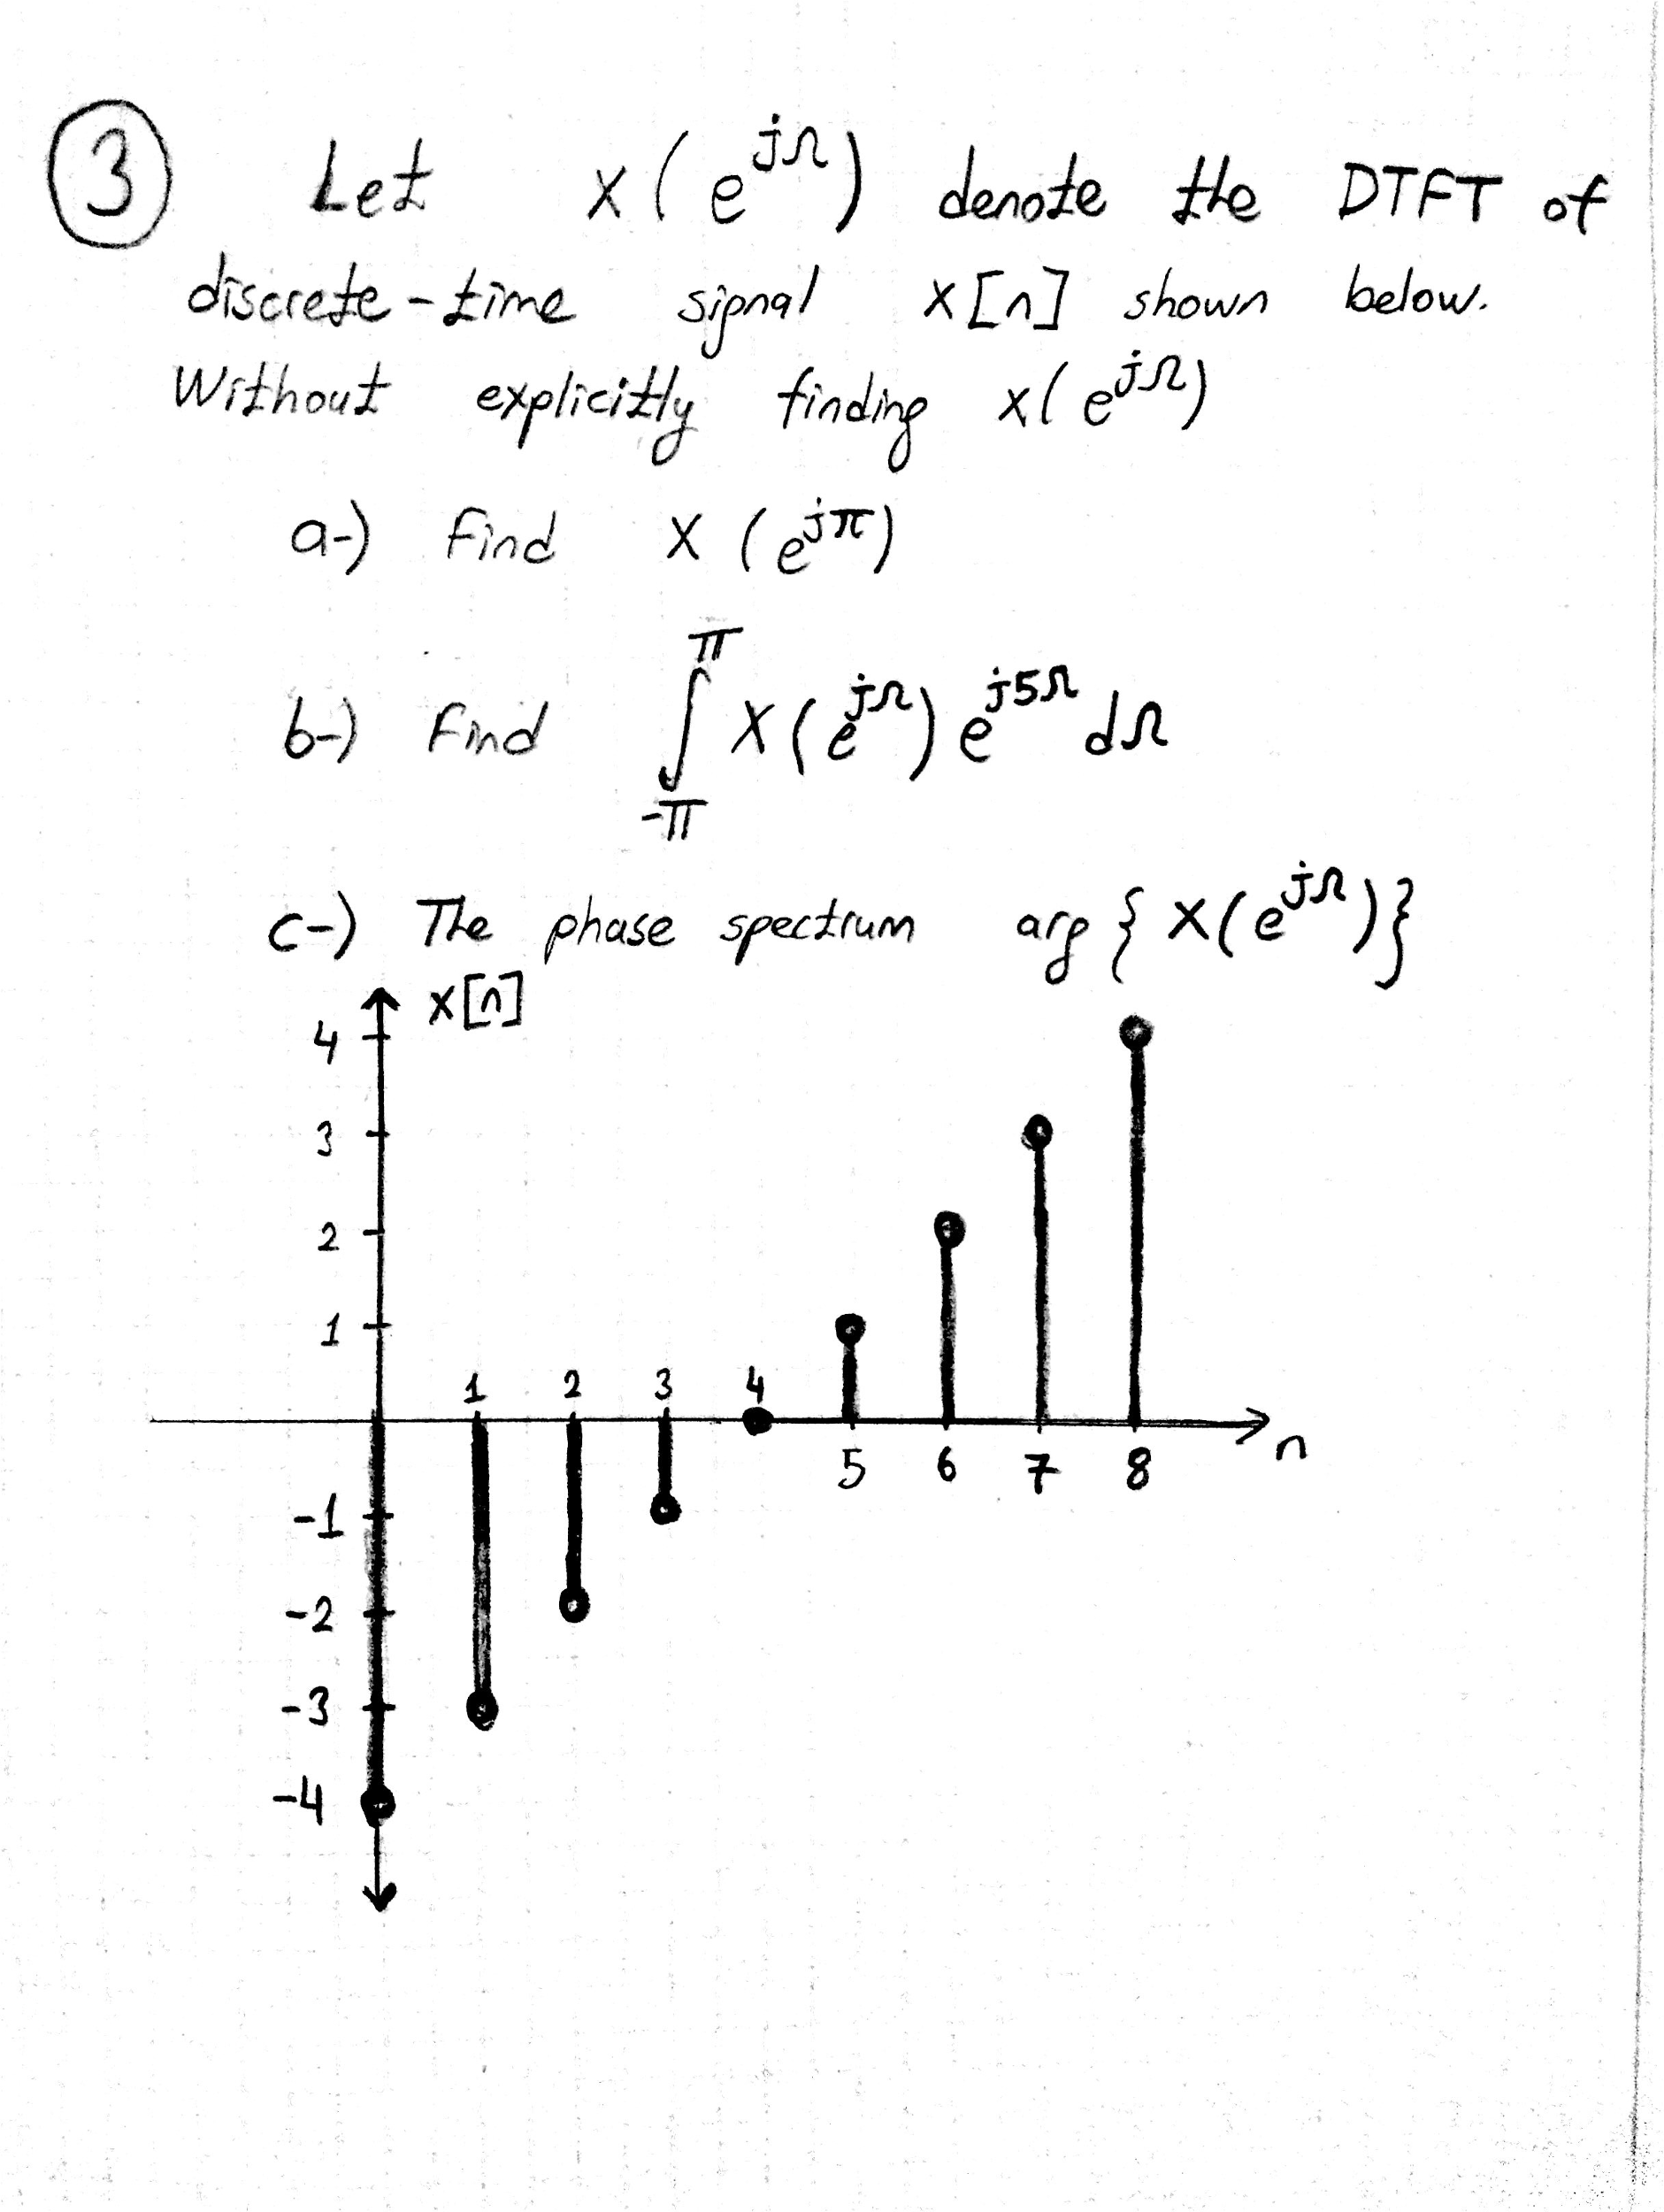 3 Let x(e^jΩ) denote the DTFT of
discrete-time signal x[n] shown below.
Without explicitly finding x(e^jΩ)
a-) Find x(e^jπ)
b-) Find ∫_-π^π X(e^jΩ) e^j5Ω dΩ
c-) The phase spectrum arg{x(e^jΩ)}
x[n]
4
3
2
1
1 2 3 4
n
5 6 7 8
-1
-2
-3
-4